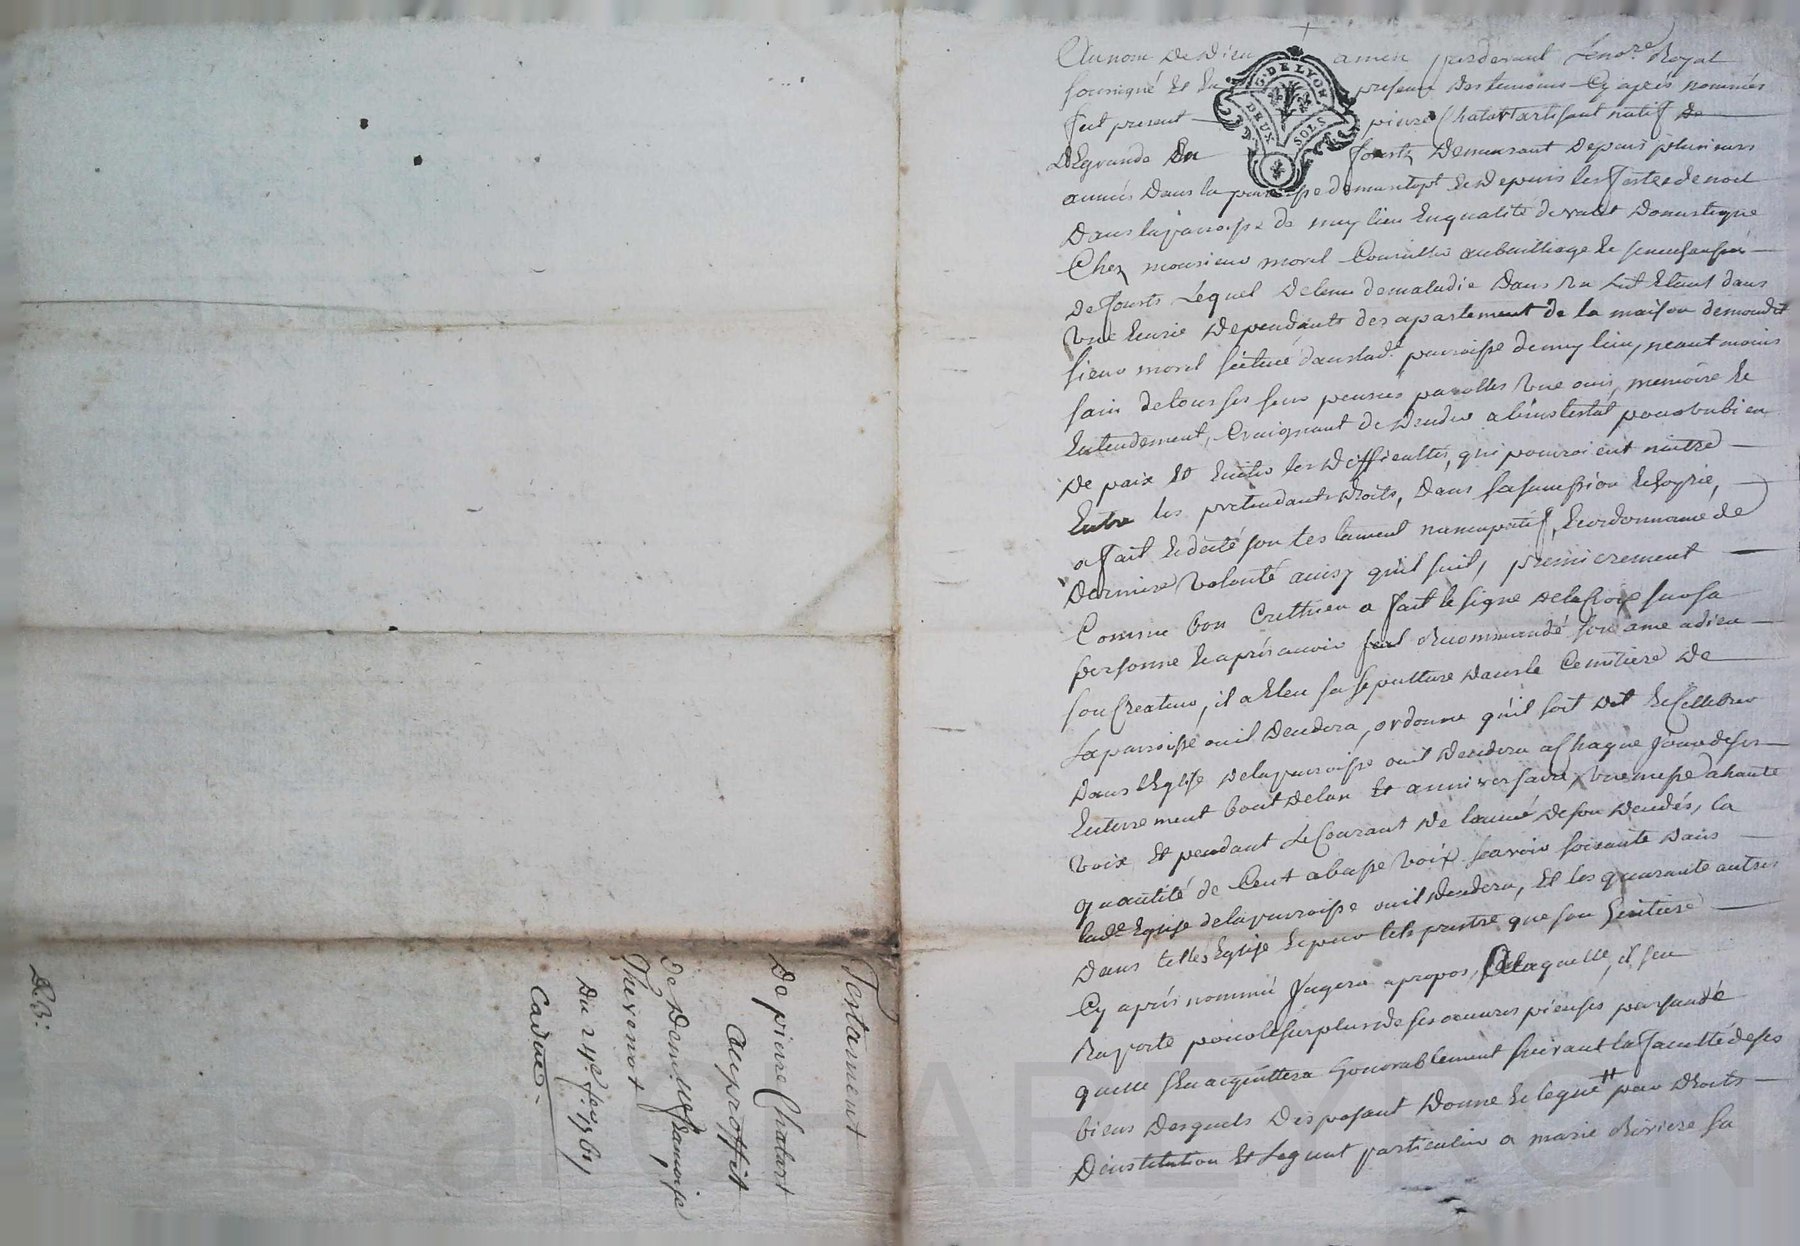 Au nom de Dieu amen pardevant Le no.re Royal
sousigné et En presence des temoins Cy aprés nommés
fut present pierre Chatart artisant natif de
DEgrande En fourtz Demeurant depuis plusieurs
années Dans la parroisse de montopt. et depuis les festes de noel
Dans la parroisse de mey lieu En qualité de valet Domestique
Chez monsieur morel Conseiller au bailliage et senechaussée
de fourts Lequel detenu de maladie Dans un Lit Etant dans
une Ecurie Dependante des apartement de la maison de mondit
sieur morel scituée dans lad.e parroisse de mey lieu, neant moins
sain de tous ses sens pensées parolles vue ouie, memoire et
Entendement, Craignant de deceder
de paix Et Eviter les difficultés, qui pourroient naitre
Entre les pretendants droits, dans sa succession et hoyrie,
a fait et dicté son testament nuncupatif, et ordonnance de
derniere volonté ainsy qu'il suit, premierement
Comme bon Crethien a fait le signe de la Croix sur sa
personne et aprés avoir fait recommandé son ame a dieu
son Createur, il a Eleu sa sepulture dans le Cemitiere de
La parroisse ou il decedera, ordonne qu'il soit dit et Cellebrer
Dans L'Eglise de la parroisse ou il decedera a Chaque jour de son
Enterrement bout de lan Et anniversaire, une messe a haute
voix Et pendant le Courant de l'année de son deceds, la
quantité de Cent a basse voix scavoir soixante dans
lad.e Eglise de la parroisse ou il decedera, Et les quarante autres
Dans telles Eglise Et par tels prestre que son heritiere
Cy aprés nommée Jugera apropos, a laquelle, il s'en
Raporte pour le surplus de ses oeuvres pieuses persuadé
quelle s'En acquittera honorablement suivant la faculté de ses
biens desquels Disposant Donne et legue par droits
D'institution Et Legat particulier a marie Riviere sa
G. DE LYON
DEUX SOLS
Testament
De pierre Chatart
Au proffit
de Dem.lle
Thevenot
Du 24e. fe.r 1761
Caduc.